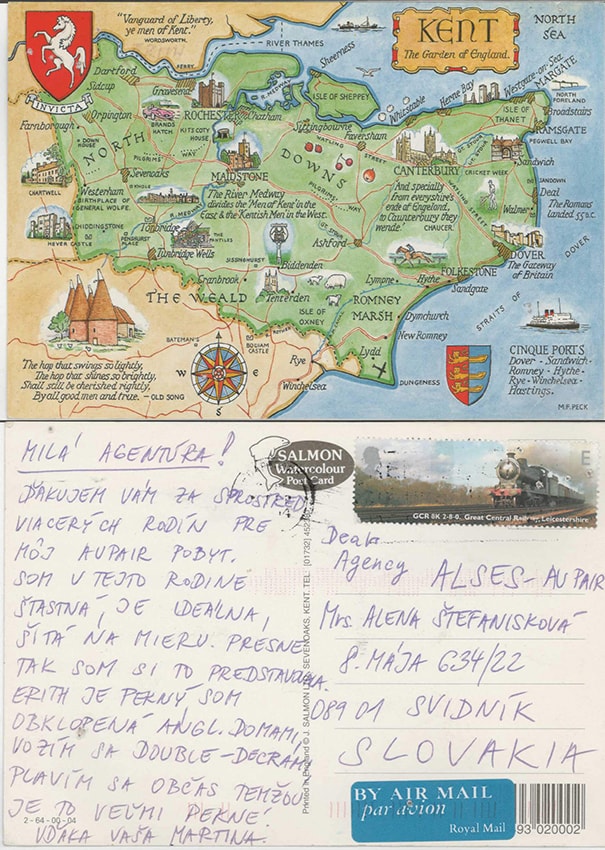 "Vanguard of Liberty,
ye men of Kent."
WORDSWORTH.
KENT
The Garden of England.
NORTH
SEA
INVICTA
RIVER THAMES
FERRY
Sheerness
Dartford
Sidcup
Gravesend
Orpington
BRANDS
HATCH
ROCHESTER
Chatham
R. MEDWAY
ISLE OF SHEPPEY
Whitstable
Herne Bay
Westgate-on-Sea
MARGATE
NORTH
FORELAND
Broadstairs
ISLE OF
THANET
RAMSGATE
PEGWELL BAY
Farnborough
DOWN
HOUSE
KITS COTY
HOUSE
Sittingbourne
Faversham
WATLING
STREET
NORTH
DOWNS
PILGRIMS'
WAY
Sevenoaks
MAIDSTONE
PILGRIMS' WAY
CANTERBURY
CRICKET WEEK
GT. STOUR
Sandwich
SANDOWN
Deal
The Romans
landed 55 B.C.
Walmer
WATLING STREET
CHARTWELL
Westerham
BIRTHPLACE OF
GENERAL WOLFE
KNOLE
The River Medway
divides the 'Men of Kent' in the
East & the 'Kentish Men' in the West.
And specially
from everyshire's
ende of Engelond,
to Caunterbury they
wende.
CHAUCER.
CHIDDINGSTONE
HEVER CASTLE
PENSHURST
PLACE
Tonbridge
R. MEDWAY
THE
PANTILES
Tunbridge Wells
SISSINGHURST
Biddenden
Ashford
GT. STOUR
FOLKESTONE
DOVER
The Gateway
of Britain
Cranbrook
Tenterden
Lympne
Hythe
Sandgate
THE WEALD
ISLE OF
OXNEY
ROMNEY
MARSH
Dymchurch
New Romney
STRAITS OF DOVER
BATEMAN'S
BODIAM
CASTLE
ROTHER
Rye
Winchelsea
Lydd
DUNGENESS
N
W
E
S
The hop that swings so lightly,
The hop that shines so brightly,
Shall still be cherished rightly,
By all good men and true. – OLD SONG
CINQUE PORTS
Dover - Sandwich -
Romney - Hythe -
Rye - Winchelsea -
Hastings.
M.F. PECK
MILÁ AGENTÚRA!
ĎAKUJEM VÁM ZA SPROSTRED
VIACERÝCH RODÍN PRE
MÔJ AUPAIR POBYT.
SOM V TEJTO RODINE
ŠTASTNÁ, JE IDEÁLNA,
ŠITÁ NA MIERU. PRESNE
TAK SOM SI TO PREDSTAVOVALA.
ERITH JE PEKNÝ, SOM
OBKLOPENÁ ANGL. DOMAMI,
VOZÍM SA DOUBLE-DECRAMI
PLAVÍM SA OBČAS TEMŽOU
JE TO VEĽMI PEKNÉ!
VĎAKA VAŠA MARTINA.
2-64-00-04
SALMON
Watercolour
Post Card
E
GCR 8K 2-8-0, Great Central Railway, Leicestershire
Printed in England © J. SALMON LTD., SEVENOAKS, KENT. TEL.
Dear
Agency ALSES-AUPAIR
Mrs. ALENA ŠTEFANISKOVÁ
8. MÁJA 634/22
089 01 SVIDNÍK
SLOVAKIA
BY AIR MAIL
par avion
Royal Mail
93 020002